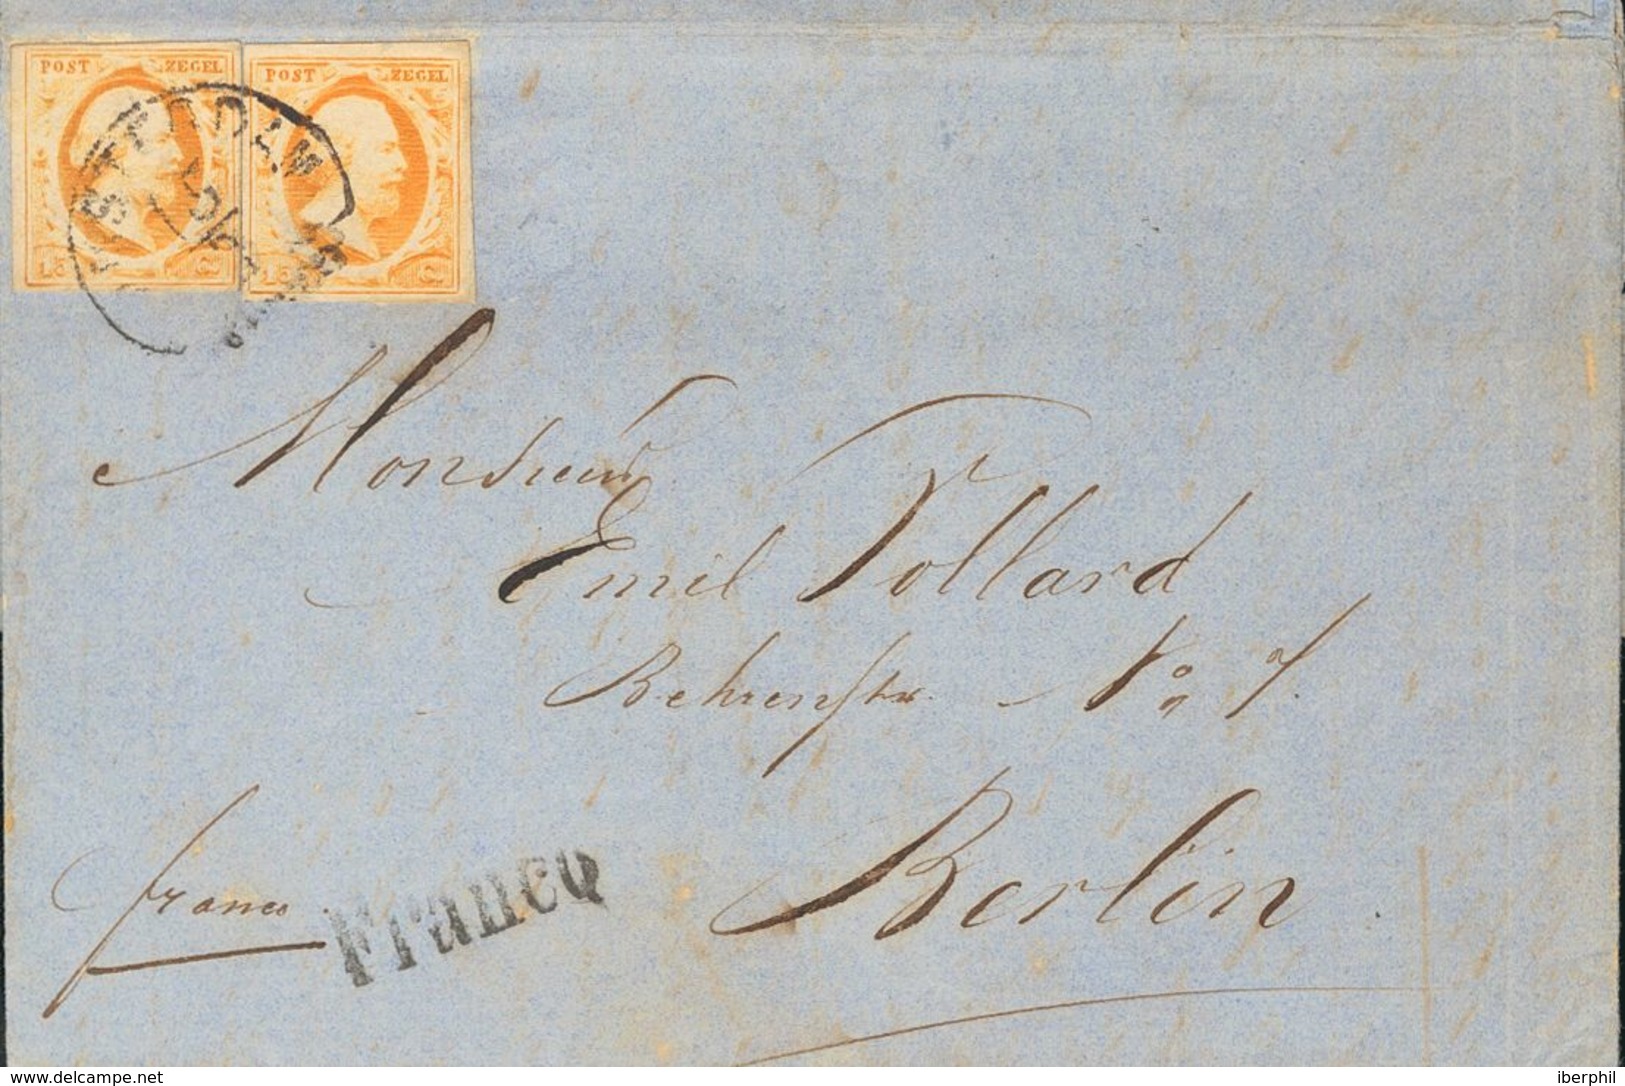 POST ZEGEL POST ZEGEL
AMSTERDAM
15 C 15 C
FRANCO
Monsieur
Emil Tollard
Behrenstr. No 7.
Berlin
franco
Franco
delcampe.net
iberphil